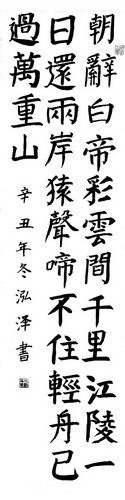 朝辭白帝彩雲間千里江陵一
日還兩岸猿聲啼不住輕舟已
過萬重山
辛丑年冬泓澤書